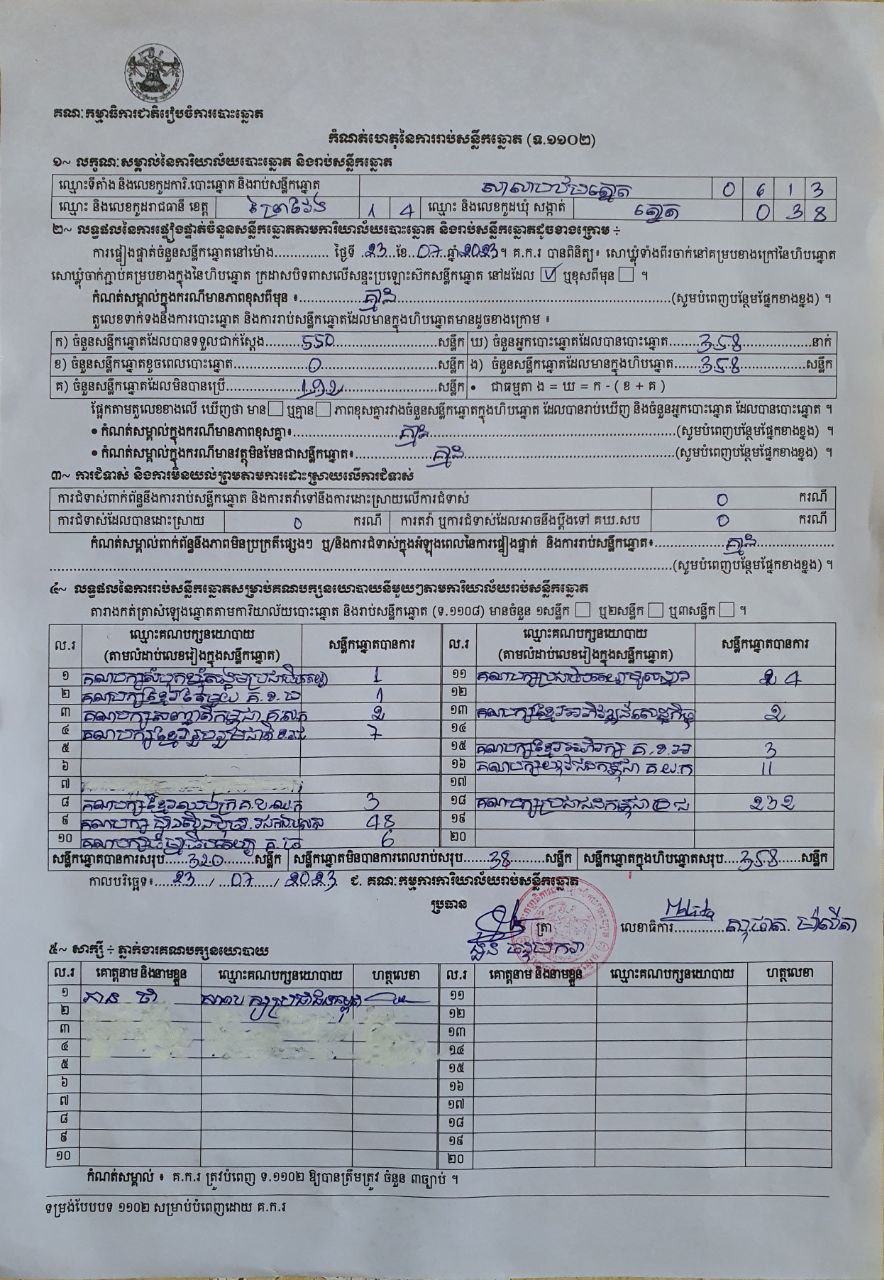 គណៈកម្មាធិការជាតិរៀបចំការបោះឆ្នោត
កំណត់ហេតុនៃការរាប់សន្លឹកឆ្នោត (ទ.១១០២)
១~ លក្ខណៈសម្គាល់នៃការិយាល័យបោះឆ្នោត និងរាប់សន្លឹកឆ្នោត
ឈ្មោះទីតាំង និងលេខកូដការិ.បោះឆ្នោត និងរាប់សន្លឹកឆ្នោត 0 6 1 3
ឈ្មោះ និងលេខកូដរាជធានី ខេត្ត ព្រៃវែង 1 4 ឈ្មោះ និងលេខកូដឃុំ សង្កាត់ 0 3 8
២~ លទ្ធផលនៃការផ្ទៀងផ្ទាត់ចំនួនសន្លឹកឆ្នោតតាមការិយាល័យបោះឆ្នោត និងរាប់សន្លឹកឆ្នោតដូចខាងក្រោម ÷
ការផ្ទៀងផ្ទាត់ចំនួនសន្លឹកឆ្នោតនៅម៉ោង.............. ថ្ងៃទី .23..ខែ..07..ឆ្នាំ2023។ គ.ក.រ បានពិនិត្យ៖ សោឃ្លុំទាំងពីរចាក់នៅគម្របខាងក្រៅនៃហិបឆ្នោត
សោឃ្លុំចាក់ភ្ជាប់គម្របខាងក្នុងនៃហិបឆ្នោត ក្រដាសបិទពាសលើសន្ទះប្រឡោះស៊កសន្លឹកឆ្នោត នៅដដែល ☑ ឬខុសពីមុន ☐ ។
កំណត់សម្គាល់ក្នុងករណីមានភាពខុសពីមុន ៖..............គ្មាន..............(សូមបំពេញបន្ថែមផ្នែកខាងខ្នង) ។
តួលេខទាក់ទងនឹងការបោះឆ្នោត និងការរាប់សន្លឹកឆ្នោតដែលមានក្នុងហិបឆ្នោតមានដូចខាងក្រោម ៖
ក) ចំនួនសន្លឹកឆ្នោតដែលបានទទួលជាក់ស្តែង........550........សន្លឹក ឃ) ចំនួនអ្នកបោះឆ្នោតដែលបានបោះឆ្នោត........358........នាក់
ខ) ចំនួនសន្លឹកឆ្នោតខូចពេលបោះឆ្នោត........0........សន្លឹក ង) ចំនួនសន្លឹកឆ្នោតដែលមានក្នុងហិបឆ្នោត........358........សន្លឹក
គ) ចំនួនសន្លឹកឆ្នោតដែលមិនបានប្រើ........192........សន្លឹក • ជាធម្មតា ង = ឃ = ក - ( ខ + គ )
ផ្អែកតាមតួលេខខាងលើ ឃើញថា មាន ☐ ឬគ្មាន ☐ ភាពខុសគ្នារវាងចំនួនសន្លឹកឆ្នោតក្នុងហិបឆ្នោត ដែលបានរាប់ឃើញ និងចំនួនអ្នកបោះឆ្នោត ដែលបានបោះឆ្នោត ។
• កំណត់សម្គាល់ក្នុងករណីមានភាពខុសគ្នា៖..............គ្មាន..............(សូមបំពេញបន្ថែមផ្នែកខាងខ្នង) ។
• កំណត់សម្គាល់ក្នុងករណីមានវត្ថុមិនមែនជាសន្លឹកឆ្នោត៖..............គ្មាន..............(សូមបំពេញបន្ថែមផ្នែកខាងខ្នង) ។
៣~ ការជំទាស់ និងការមិនយល់ព្រមតាមការដោះស្រាយលើការជំទាស់
ការជំទាស់ពាក់ព័ន្ធនឹងការរាប់សន្លឹកឆ្នោត និងការតវ៉ាទៅនឹងការដោះស្រាយលើការជំទាស់ 0 ករណី
ការជំទាស់ដែលបានដោះស្រាយ 0 ករណី ការតវ៉ា ឬការជំទាស់ដែលអាចនឹងប្តឹងទៅ គឃ.សប 0 ករណី
កំណត់សម្គាល់ពាក់ព័ន្ធនឹងភាពមិនប្រក្រតីផ្សេងៗ ឬ/និងការជំទាស់ក្នុងអំឡុងពេលនៃការផ្ទៀងផ្ទាត់ និងការរាប់សន្លឹកឆ្នោត៖..............គ្មាន..............
..............(សូមបំពេញបន្ថែមផ្នែកខាងខ្នង) ។
៤~ លទ្ធផលនៃការរាប់សន្លឹកឆ្នោតសម្រាប់គណបក្សនយោបាយនីមួយៗតាមការិយាល័យរាប់សន្លឹកឆ្នោត
តារាងកត់ត្រាសំឡេងឆ្នោតតាមការិយាល័យបោះឆ្នោត និងរាប់សន្លឹកឆ្នោត (ទ.១១០៨) មានចំនួន ១សន្លឹក ☐ ឬ២សន្លឹក ☐ ឬ៣សន្លឹក ☐ ។
ល.រ ឈ្មោះគណបក្សនយោបាយ (តាមលំដាប់លេខរៀងក្នុងសន្លឹកឆ្នោត) សន្លឹកឆ្នោតបានការ ល.រ ឈ្មោះគណបក្សនយោបាយ (តាមលំដាប់លេខរៀងក្នុងសន្លឹកឆ្នោត) សន្លឹកឆ្នោតបានការ
១ 1 ១១ 24
២ 1 ១២
៣ 2 ១៣ គណបក្សខ្មែរអភិវឌ្ឍន៍សេដ្ឋកិច្ច 2
៤ គណបក្សខ្មែររួបរួមជាតិ 7 ១៤
៥ ១៥ គណបក្សខ្មែរអភិរក្ស គ.ខ.អ 3
៦ ១៦ គណបក្សយុវជនកម្ពុជា គ.យ.ក 11
៧ ១៧
៨ 3 ១៨ គណបក្សប្រជាជនកម្ពុជា 232
៩ គណបក្ស ហ្វ៊ុនស៊ិនប៉ិច 48 ១៩
១០ 6 ២០
សន្លឹកឆ្នោតបានការសរុប......320......សន្លឹក សន្លឹកឆ្នោតមិនបានការពេលរាប់សរុប......38......សន្លឹក សន្លឹកឆ្នោតក្នុងហិបឆ្នោតសរុប....358......សន្លឹក
កាលបរិច្ឆេទ៖.....23...../.....07...../.....2023 ជ. គណៈកម្មការការិយាល័យរាប់សន្លឹកឆ្នោត
ប្រធាន
ត្រា លេខាធិការ
៥~ សាក្សី ÷ ភ្នាក់ងារគណបក្សនយោបាយ
ល.រ គោត្តនាម និងនាមខ្លួន ឈ្មោះគណបក្សនយោបាយ ហត្ថលេខា ល.រ គោត្តនាម និងនាមខ្លួន ឈ្មោះគណបក្សនយោបាយ ហត្ថលេខា
១ ១១
២ ១២
៣ ១៣
៤ ១៤
៥ ១៥
៦ ១៦
៧ ១៧
៨ ១៨
៩ ១៩
១០ ២០
កំណត់សម្គាល់ ៖ គ.ក.រ ត្រូវបំពេញ ទ.១១០២ ឱ្យបានត្រឹមត្រូវ ចំនួន ៣ច្បាប់ ។
ទម្រង់បែបបទ ១១០២ សម្រាប់បំពេញដោយ គ.ក.រ